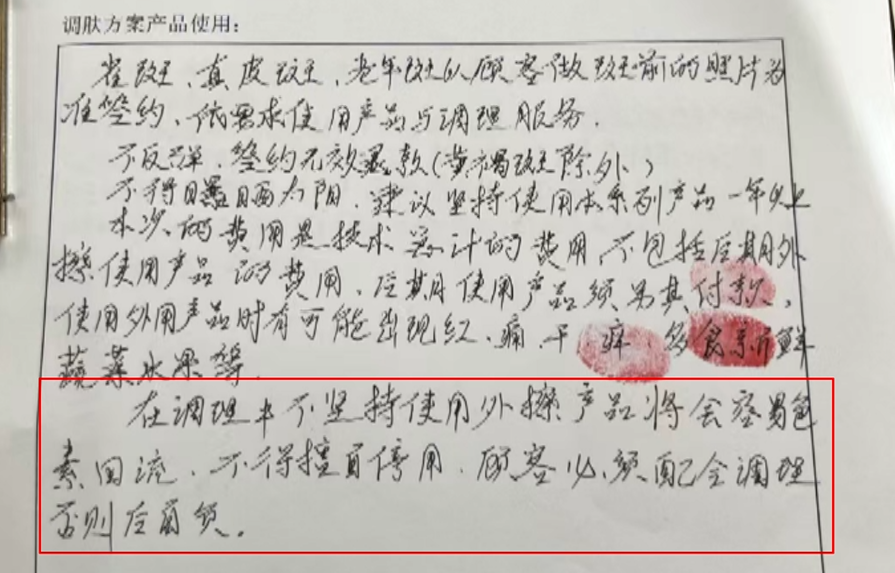 调肤方案产品使用：
雀斑、真皮斑、老年斑以顾客做斑前的照片为
准签约、依要求使用产品与调理服务.
不反弹.签约无效退款(黄褐斑除外)
不得曝晒太阳.建议坚持使用本系列产品一年以上
本次的费用是技术设计的费用,不包括后期外
擦使用产品的费用.后期使用产品须另其付款,
使用外用产品时有可能出现红.痛.干 痒 多食新鲜
蔬菜水果等.
在调理中不坚持使用外擦产品将会容易色
素回流.不得擅自停用.顾客必须配合调理
否则后负.